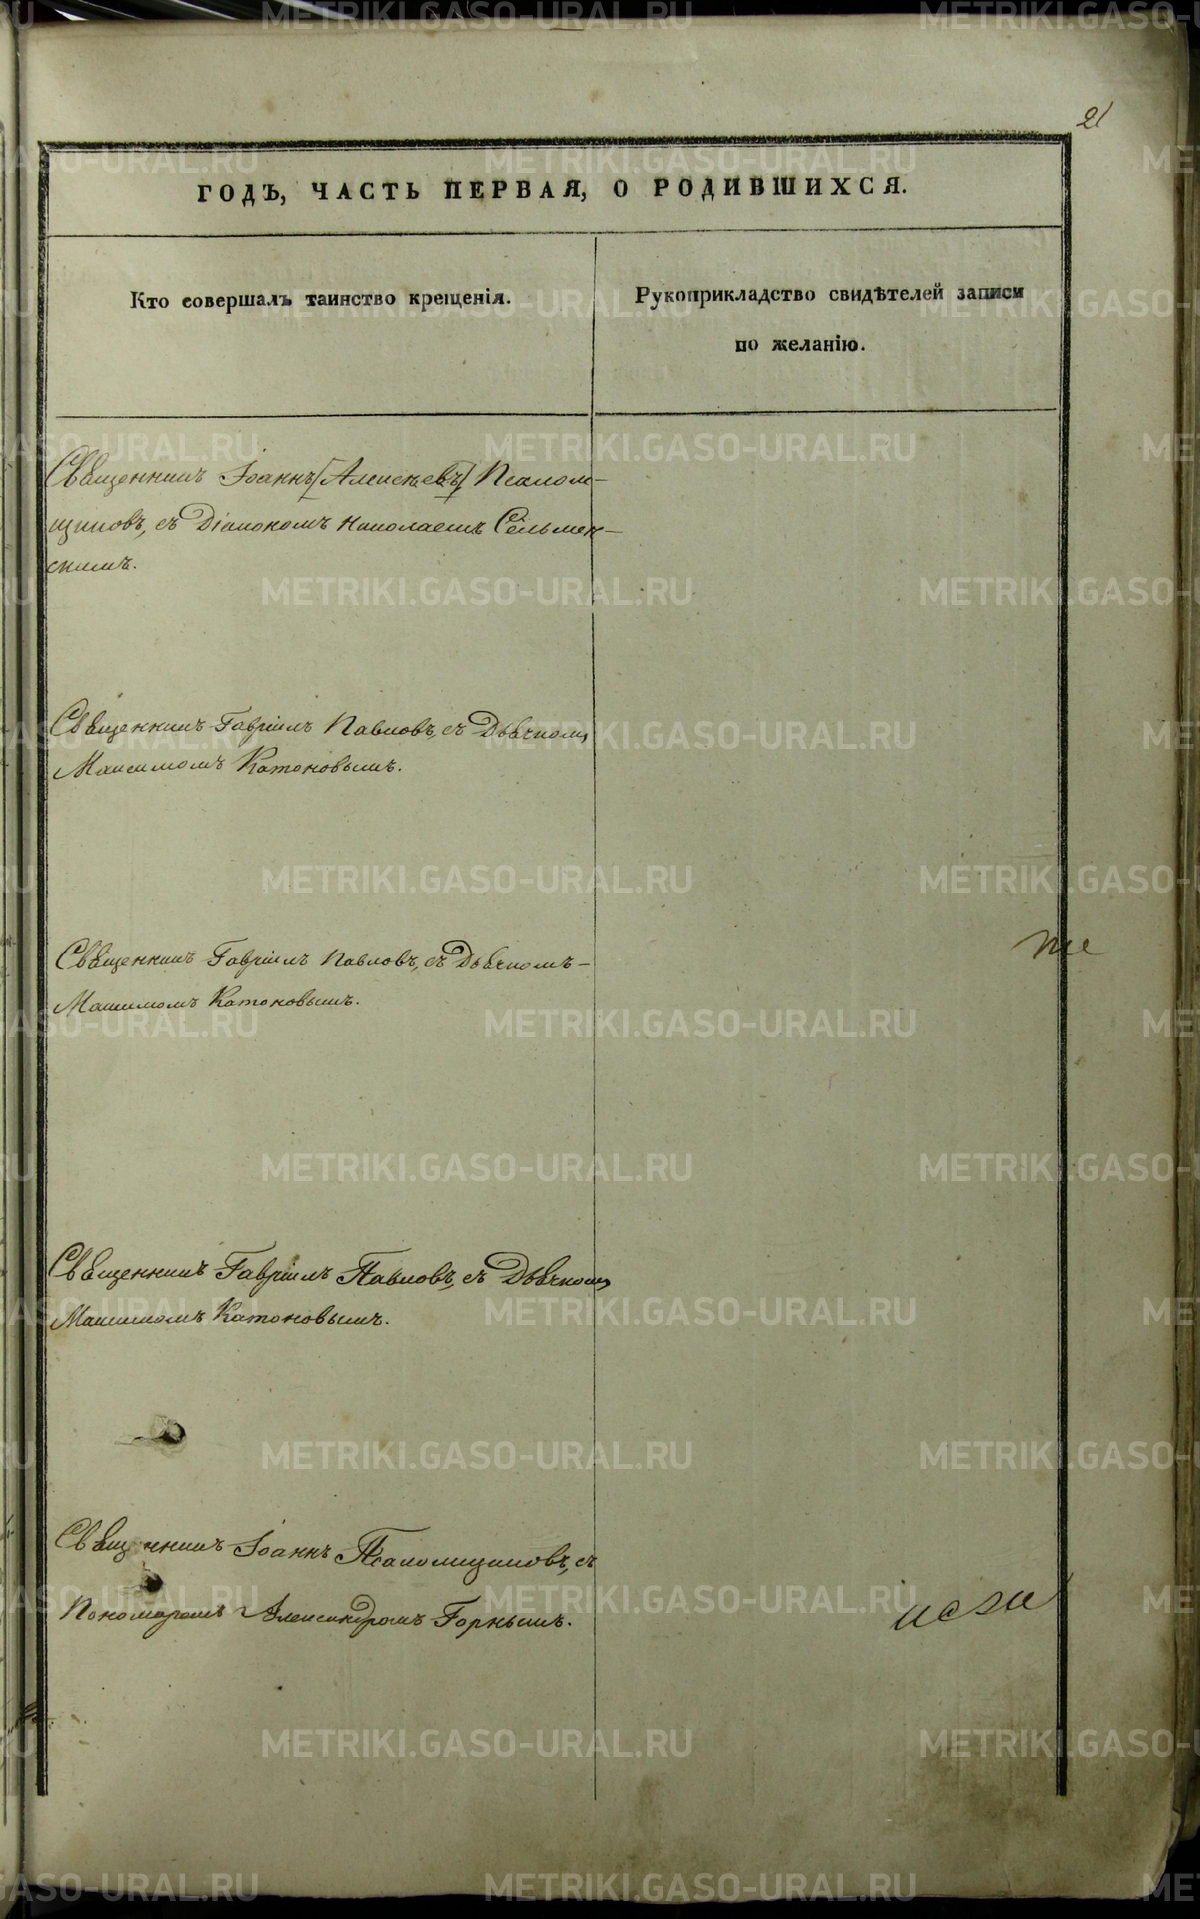 21
ГОДЪ, ЧАСТЬ ПЕРВАЯ, О РОДИВШИХСЯ.
Кто совершалъ таинство крещенія.
Рукоприкладство свидѣтелей записи
по желанію.
Священникъ Іоаннъ [Алексѣевъ] Псалом-
щиковъ, съ Діакономъ Николаемъ Сельмен-
скимъ.
Священникъ Гавріилъ Павловъ, съ Дьячкомъ
Максимомъ Катоновымъ.
Священникъ Гавріилъ Павловъ, съ Дьячкомъ-
Максимомъ Катоновымъ.
Священникъ Гавріилъ Павловъ, съ Дьячкомъ
Максимомъ Катоновымъ.
Священникъ Іоаннъ Псаломщиковъ, съ
Пономаремъ Александромъ Горнымъ.
METRIKI.GASO-URAL.RU